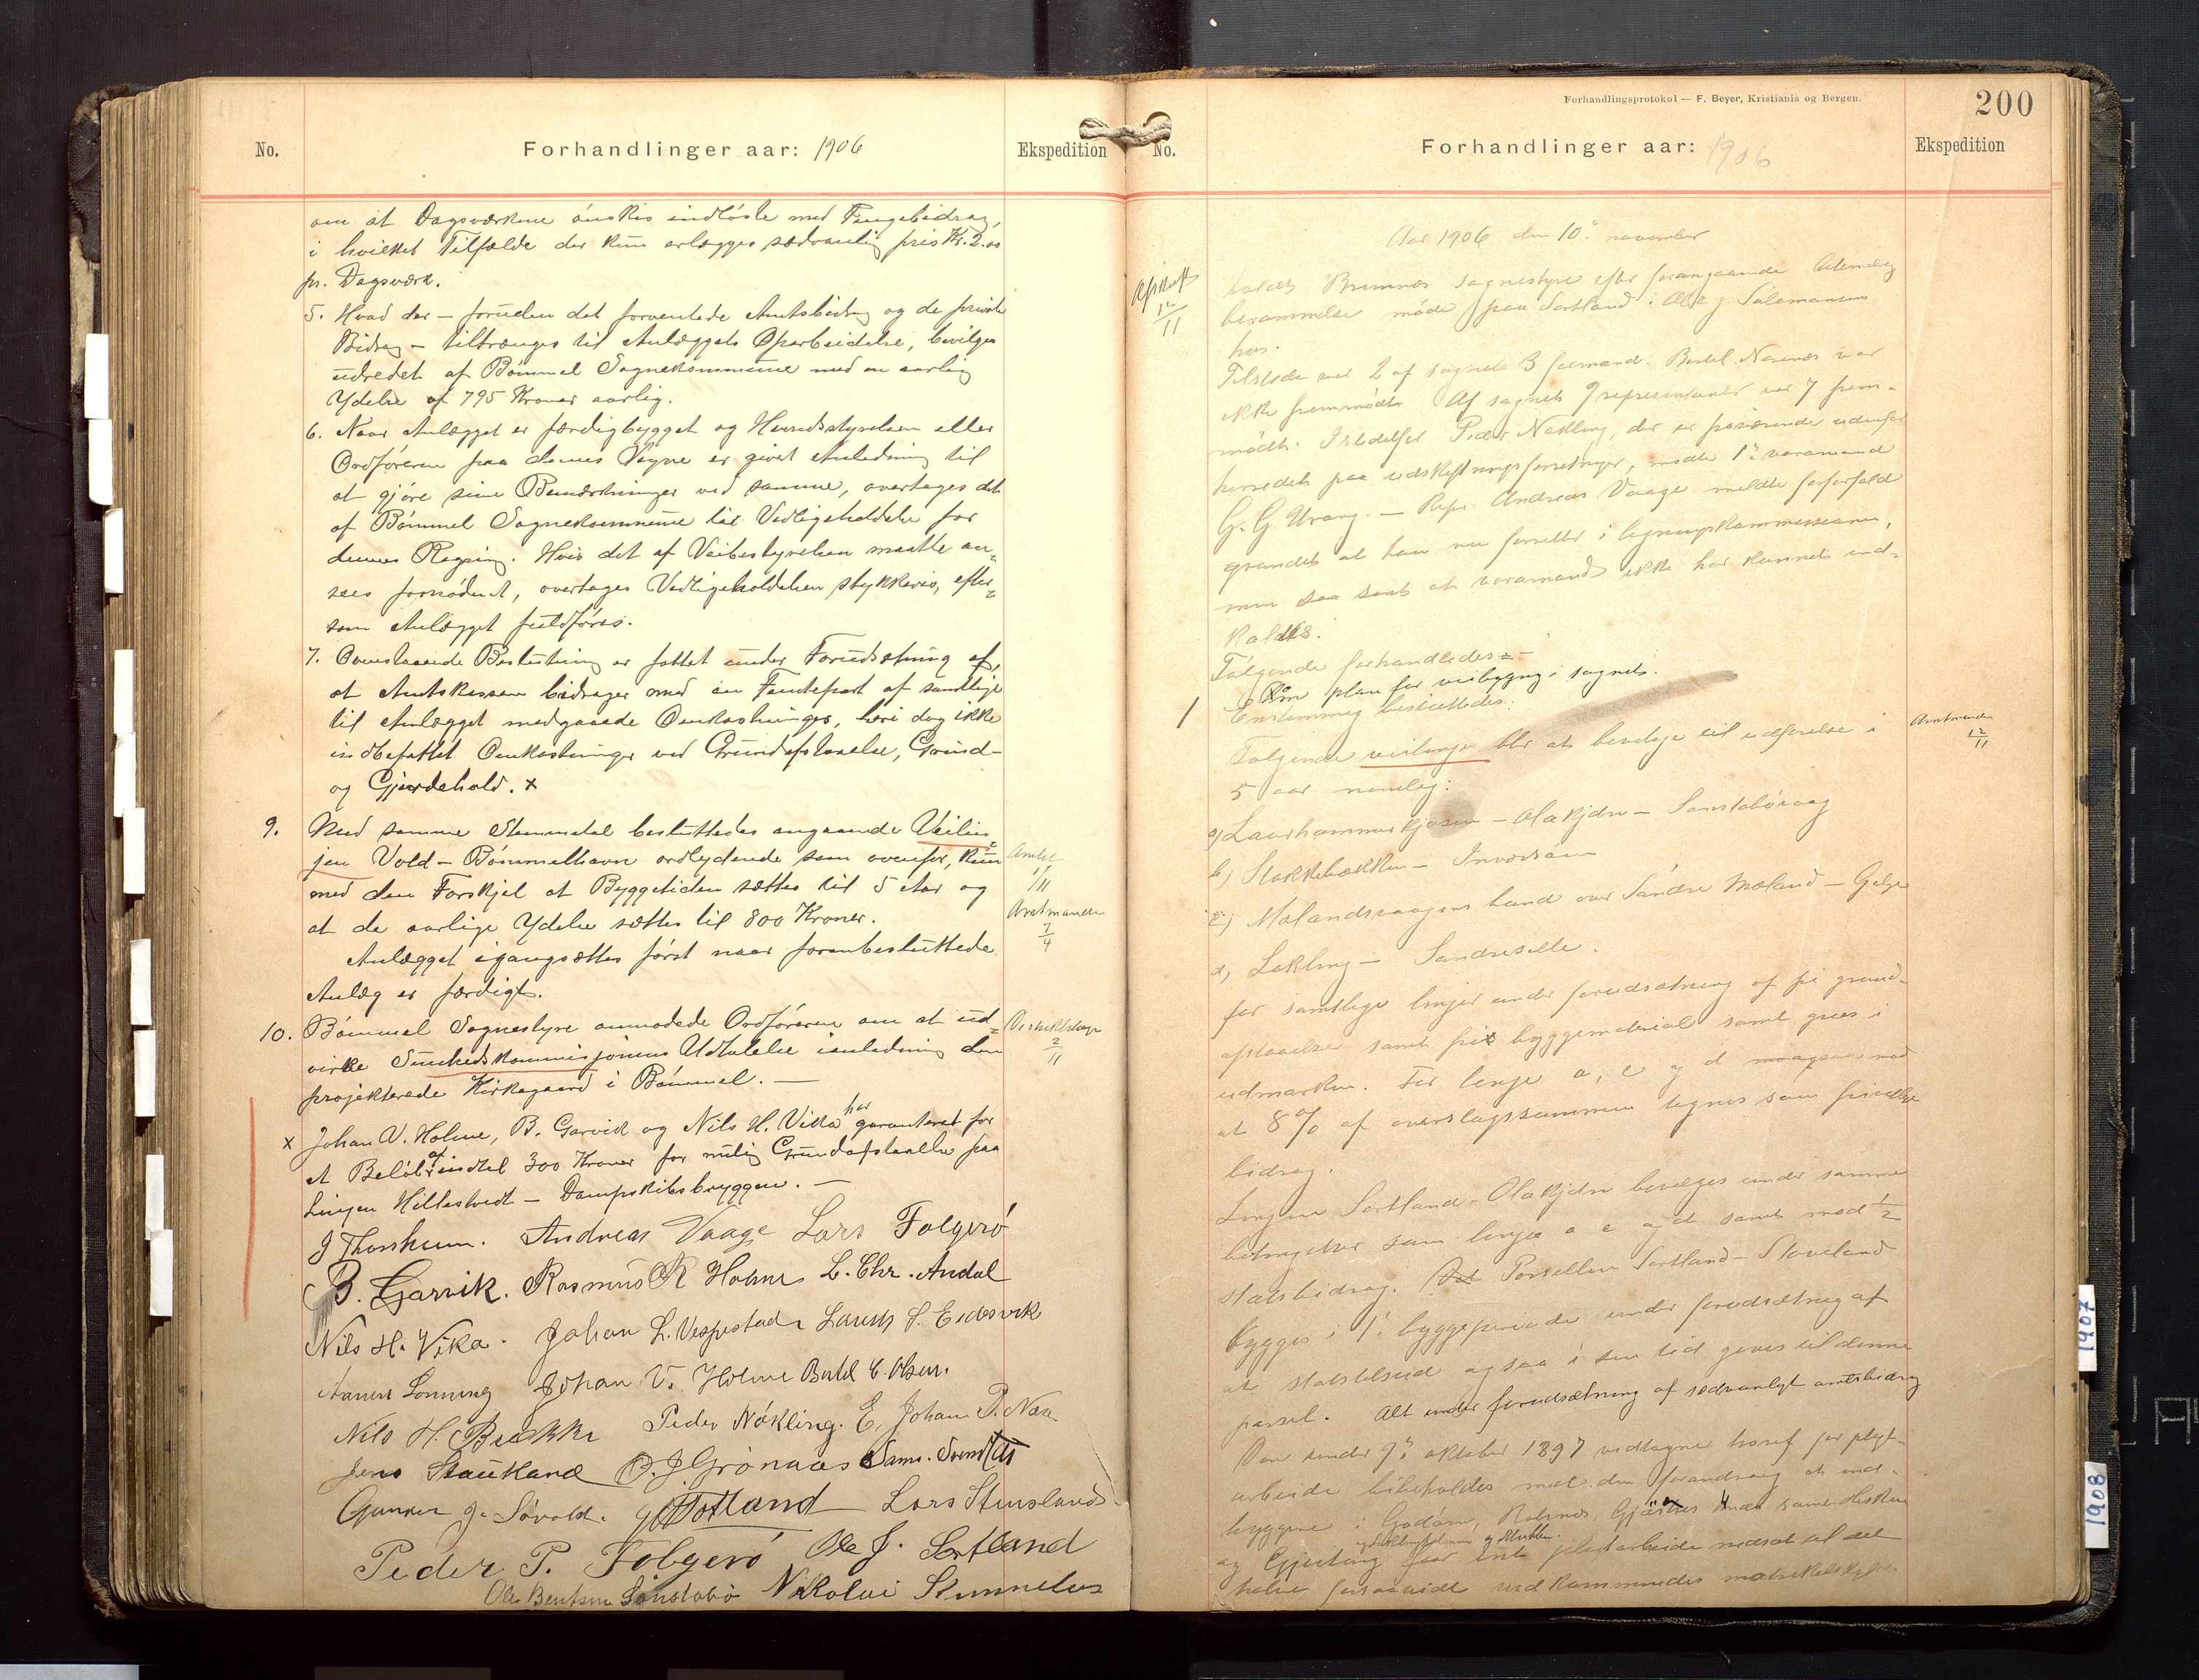 No.
Forhandlinger aar: 1906
Ekspedition
om at Dagsværkene ønskes indløste med Pengebidrag,
i hvilket Tilfælde der kun erlægges sædvanlig pris Kr. 2.00
pr. Dagsværk.
5. Hvad der – foruden det forventede Amtsbidrag og de private
Bidrag – tiltrænges til Anlæggets Oparbeidelse, bevilges
udredet af Bømmel Sognekommune med en aarlig
Ydelse af 795 Kroner aarlig.
6. Naar Anlægget er færdigbygget og Herredsstyrelsen eller
Ordføreren paa dennes Vegne er givet Anledning til
at gjøre sine Bemærkninger ved samme, overtages det
af Bømmel Sognekommune til Vedligeholdelse for
dennes Regning. Hvis det af Veibestyrelsen maatte an-
sees fornødent, overtages Vedligeholdelsen stykkevis, efter-
som Anlægget fuldføres.
7. Ovenstaaende Beslutning er fattet under Forudsætning af,
at Amtskassen bidrager med en Femtepart af samtlige
til Anlægget medgaaede Omkostninger, heri dog ikke
indbefattet Omkostninger ved Grundafstaaelse, Grind-
og Gjerdehold. x
9. Med samme Stemmetal besluttedes angaaende Veilin-
jen Vold – Bømmelhavn ordlydende som ovenfor, kun
med den Forskjel at Byggetiden sættes til 5 Aar og
at de aarlige Ydelse sættes til 800 Kroner.
Anlægget igangsættes først naar foranbesluttede
Anlæg er færdigt.
Amtet
1/11
Amtmanden
7/4
10. Bømmel Sognestyre anmodede Ordføreren om at ud-
virke Sundhedskommisjonens Udtalelse i anledning den
projekterede Kirkegaard i Bømmel. —
2/11
x Johan V. Holme, B. Garvik og Nils H. Vika har garanteret for
et Beløb af indtil 300 Kroner for mulig Grundafstaaelse paa
Linjen Hillestvedt – Dampskibsbryggen. —
J Thorsheim. Andreas Vaage Lars Folgerø
B. Garvik. Rasmus R Holme L. Chr. Andal
Nils H. Vika. Johan L. Vespestad Laurits S. Eidesvik
Lønning Johan V. Holme Bertel E. Olsen.
Nils H. Bekke Peder Nøkling. E. Johan P. Næs
Jens Stautland O. J. Grønaas Sams. Svendsen
Gunnar J. Søvold. Lars Stensland
Peder P. Folgerø Ole J. Sortland
Ole Bentsen Sønstabø Nikolai Skimmeland
Forhandlingsprotokol — F. Beyer, Kristiania og Bergen.
200
No.
Forhandlinger aar: 1906
Ekspedition
Aar 1906 den 10de november
Afskrift
12/11
holdt Bremnes sognestyre efter forangaaende lovlig
berammelse møde paa Sortland i Ole J. Salamonsens
hus.
Tilstede var 2 af sognets 3 formænd. Bertel Næsnes var
ikke fremmødt. Af sognets 9 repræsentanter var 7 frem-
mødt. Istedetfor Peder Nøkling, der er fraværende udenfor
herredet paa udskiftningsforretninger, mødte 1ste varamand
G. G. Urang. — Repr. Andreas Vaage meldte forfald
grundet at han nu forretter i ligningskommissionen,
men saa sent at varamand ikke har kunnet ind-
kaldes.
Følgende forhandledes: —
1 Om plan for veibygning i sognet.
Enstemmig besluttedes:
Følgende veilinjer blir at bevilge til udførelse i
5 aar nemlig:
Amtmanden
12/11
a) Laurhammerkjosen – Olakjdn – Sønstabøvaag
b) Stokkebækken – Inværsøen
c) Mælandsvaagens bund over Søndre Mæland – Gelge
d) Løkling – Sandreselle.
for samtlige linjer under forudsætning af fri grund-
afstaaelse samt frit byggemateriale samt grus i
udmarken. For linje a, c og d med
at 8 % af overslagssummen tegnes som private
bidrag.
Linjen Sortland – Olakjdn bevilges under samme
betingelser som linje a c og d samt med 1/2
statsbidrag. Parsellen Sortland – Stoveland
bygges i 1ste byggeperiode under forudsætning af
at statstilskud ogsaa i sin tid gives til denne
parsel. Alt under forudsætning af sædvanligt amtsbidrag
Den under 9de oktober 1897 vedtagne tarif for pligt-
arbeide bibeholdes med den forandring at ind-
byggerne i Goddøen, Holsnes, samt Hisken
og Gjerting faar sit pligtarbeide nedsat til det
halve forsaavidt vedkommendes matrikelskyld
1907
1908